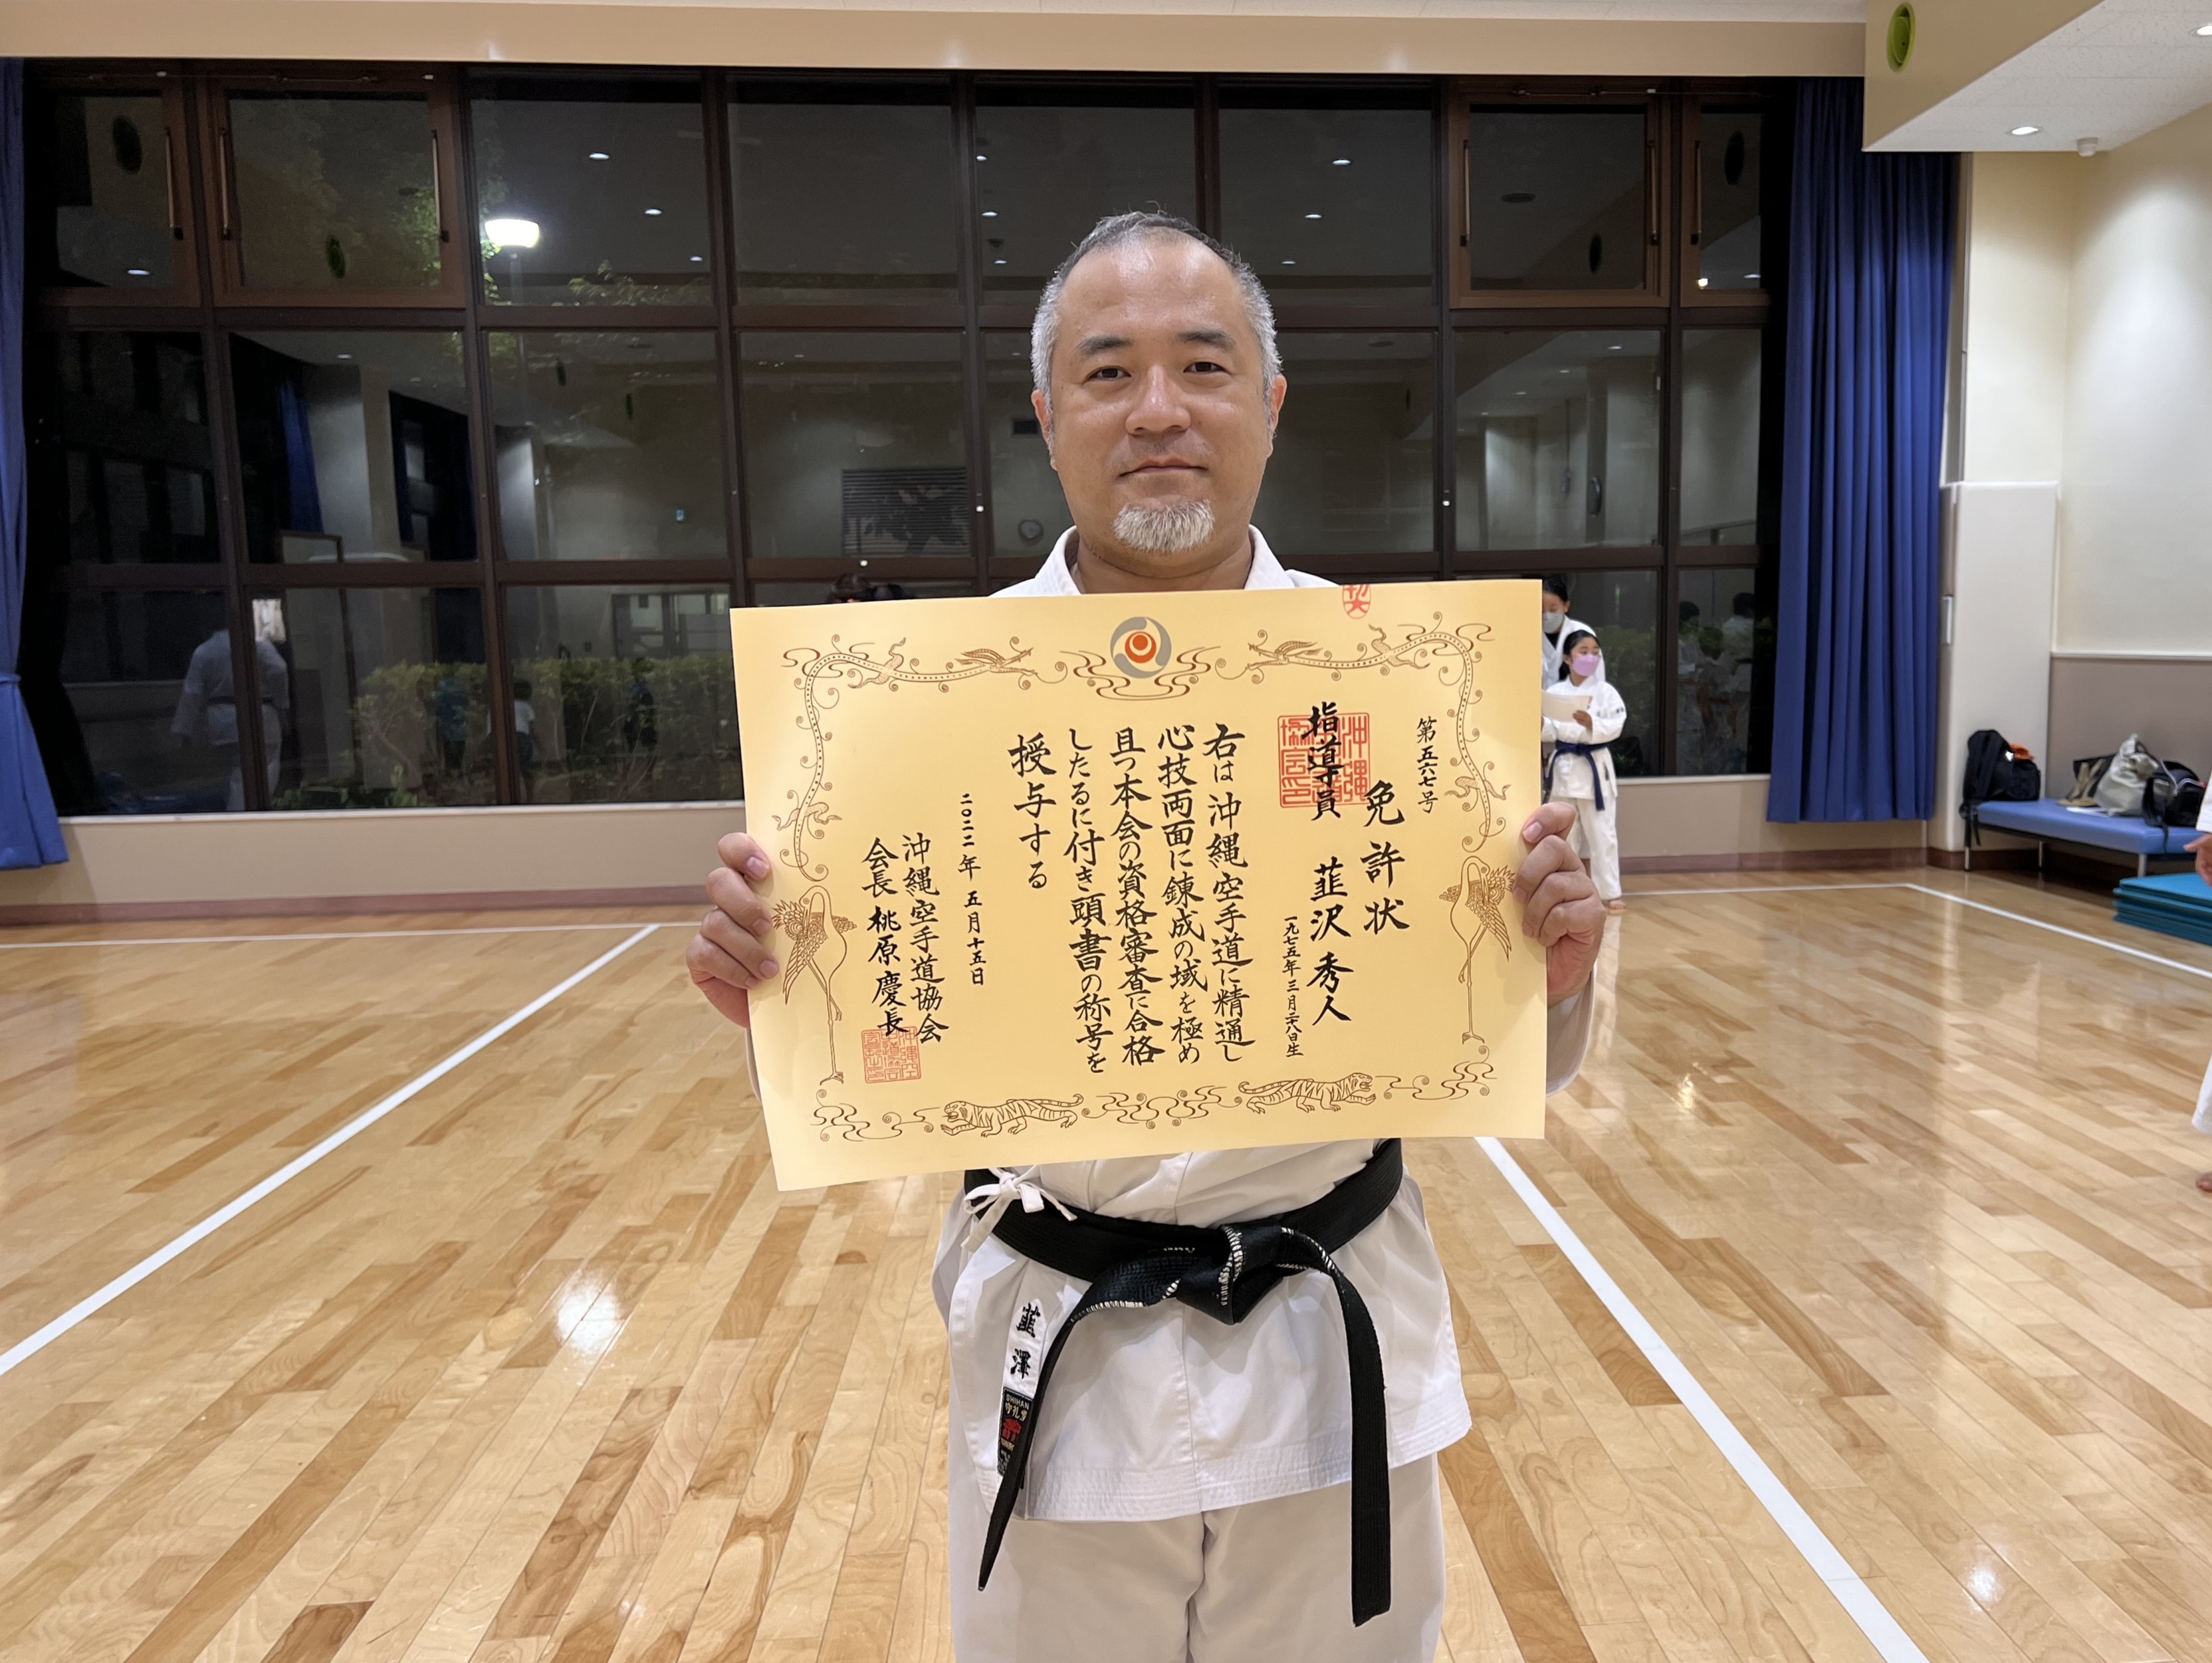 第五六七号
免許状
指導員 韮沢秀人
一九七五年三月二八日生
右は沖縄空手道に精通し
心技両面に錬成の域を極め
且つ本会の資格審査に合格
したるに付き頭書の称号を
授与する
二〇二二年五月十五日
沖縄空手道協会
会長 桃原慶長
韮澤
SHIHAN
守礼堂